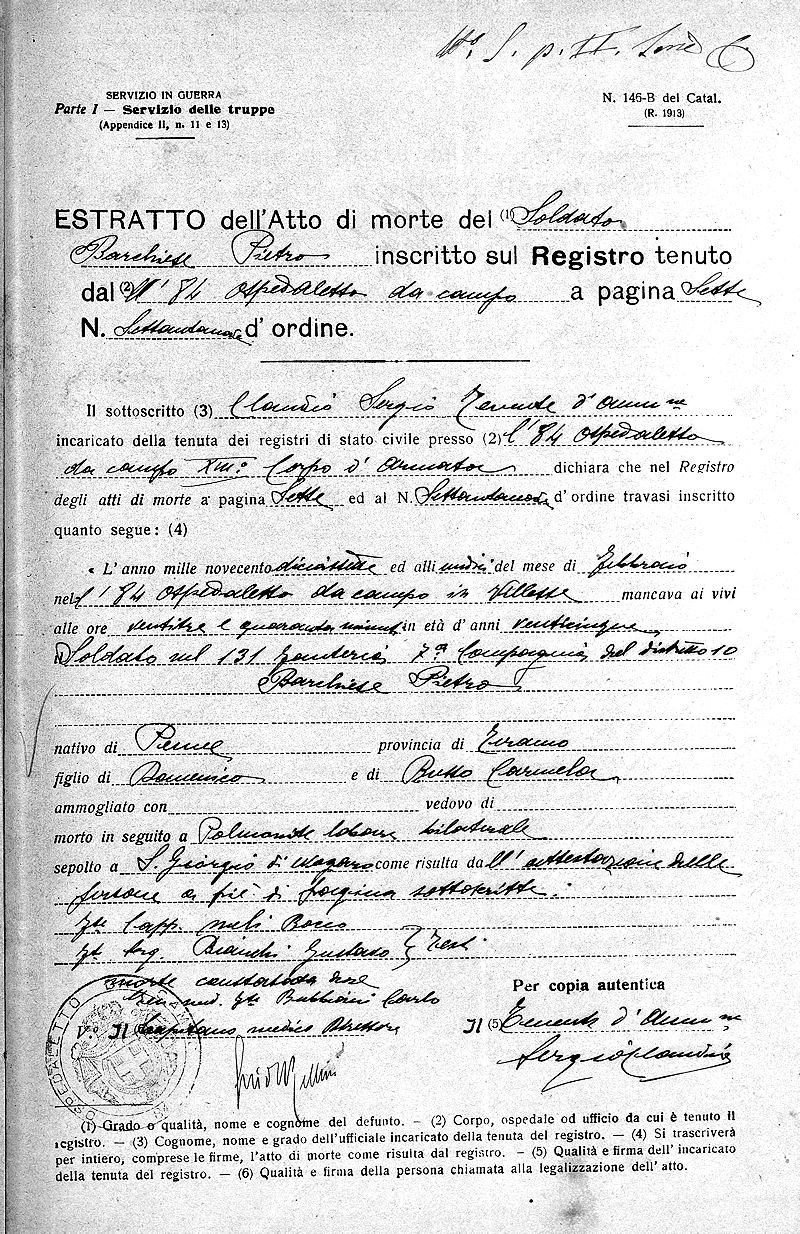 SERVIZIO IN GUERRA
Parte I — Servizio delle truppe
(Appendice II, n. 11 e 13)
N. 146-B del Catal.
(R. 1913)
ESTRATTO dell'Atto di morte del (1) Soldato
Barchiese Pietro inscritto sul Registro tenuto
dal (2) N° 84 ospedaletto da campo a pagina Sette
N. d'ordine.
Il sottoscritto (3) Claudio Sergio Tenente d'Amm ne
incaricato della tenuta dei registri di stato civile presso (2) l'84 ospedaletto
da campo XIII° Corpo d'Armata dichiara che nel Registro
degli atti di morte a pagina Sette ed al N. d'ordine travasi inscritto
quanto segue: (4)
« L'anno mille novecento diciassette ed alli undici del mese di febbraio
nel l'84 ospedaletto da campo in Villesse mancava ai vivi
alle ore ventitre e quaranta minuti in età d'anni venticinque
Soldato nel 131 fanteria 7a Compagnia del distretto 10
Barchiese Pietro
nativo di Penne provincia di Teramo
figlio di Domenico e di Carmela
ammogliato con vedovo di
morto in seguito a Polmonite lobare bilaterale
sepolto a S. Giorgio di Nogaro come risulta dall'attestazione delle
persone a piè di pagina sottoscritte.
Rocco
Bianchi Gustavo } Testi
morte constatata
Carlo
V.° Il Capitano medico Direttore
Per copia autentica
Il (5) Tenente d'Amm ne
Sergio Claudio
OSPEDALETTO DA CAMPO
(1) Grado o qualità, nome e cognome del defunto. — (2) Corpo, ospedale od ufficio da cui è tenuto il
registro. — (3) Cognome, nome e grado dell'ufficiale incaricato della tenuta del registro. — (4) Si trascriverà
per intiero, comprese le firme, l'atto di morte come risulta dal registro. — (5) Qualità e firma dell'incaricato
della tenuta del registro. — (6) Qualità e firma della persona chiamata alla legalizzazione dell'atto.